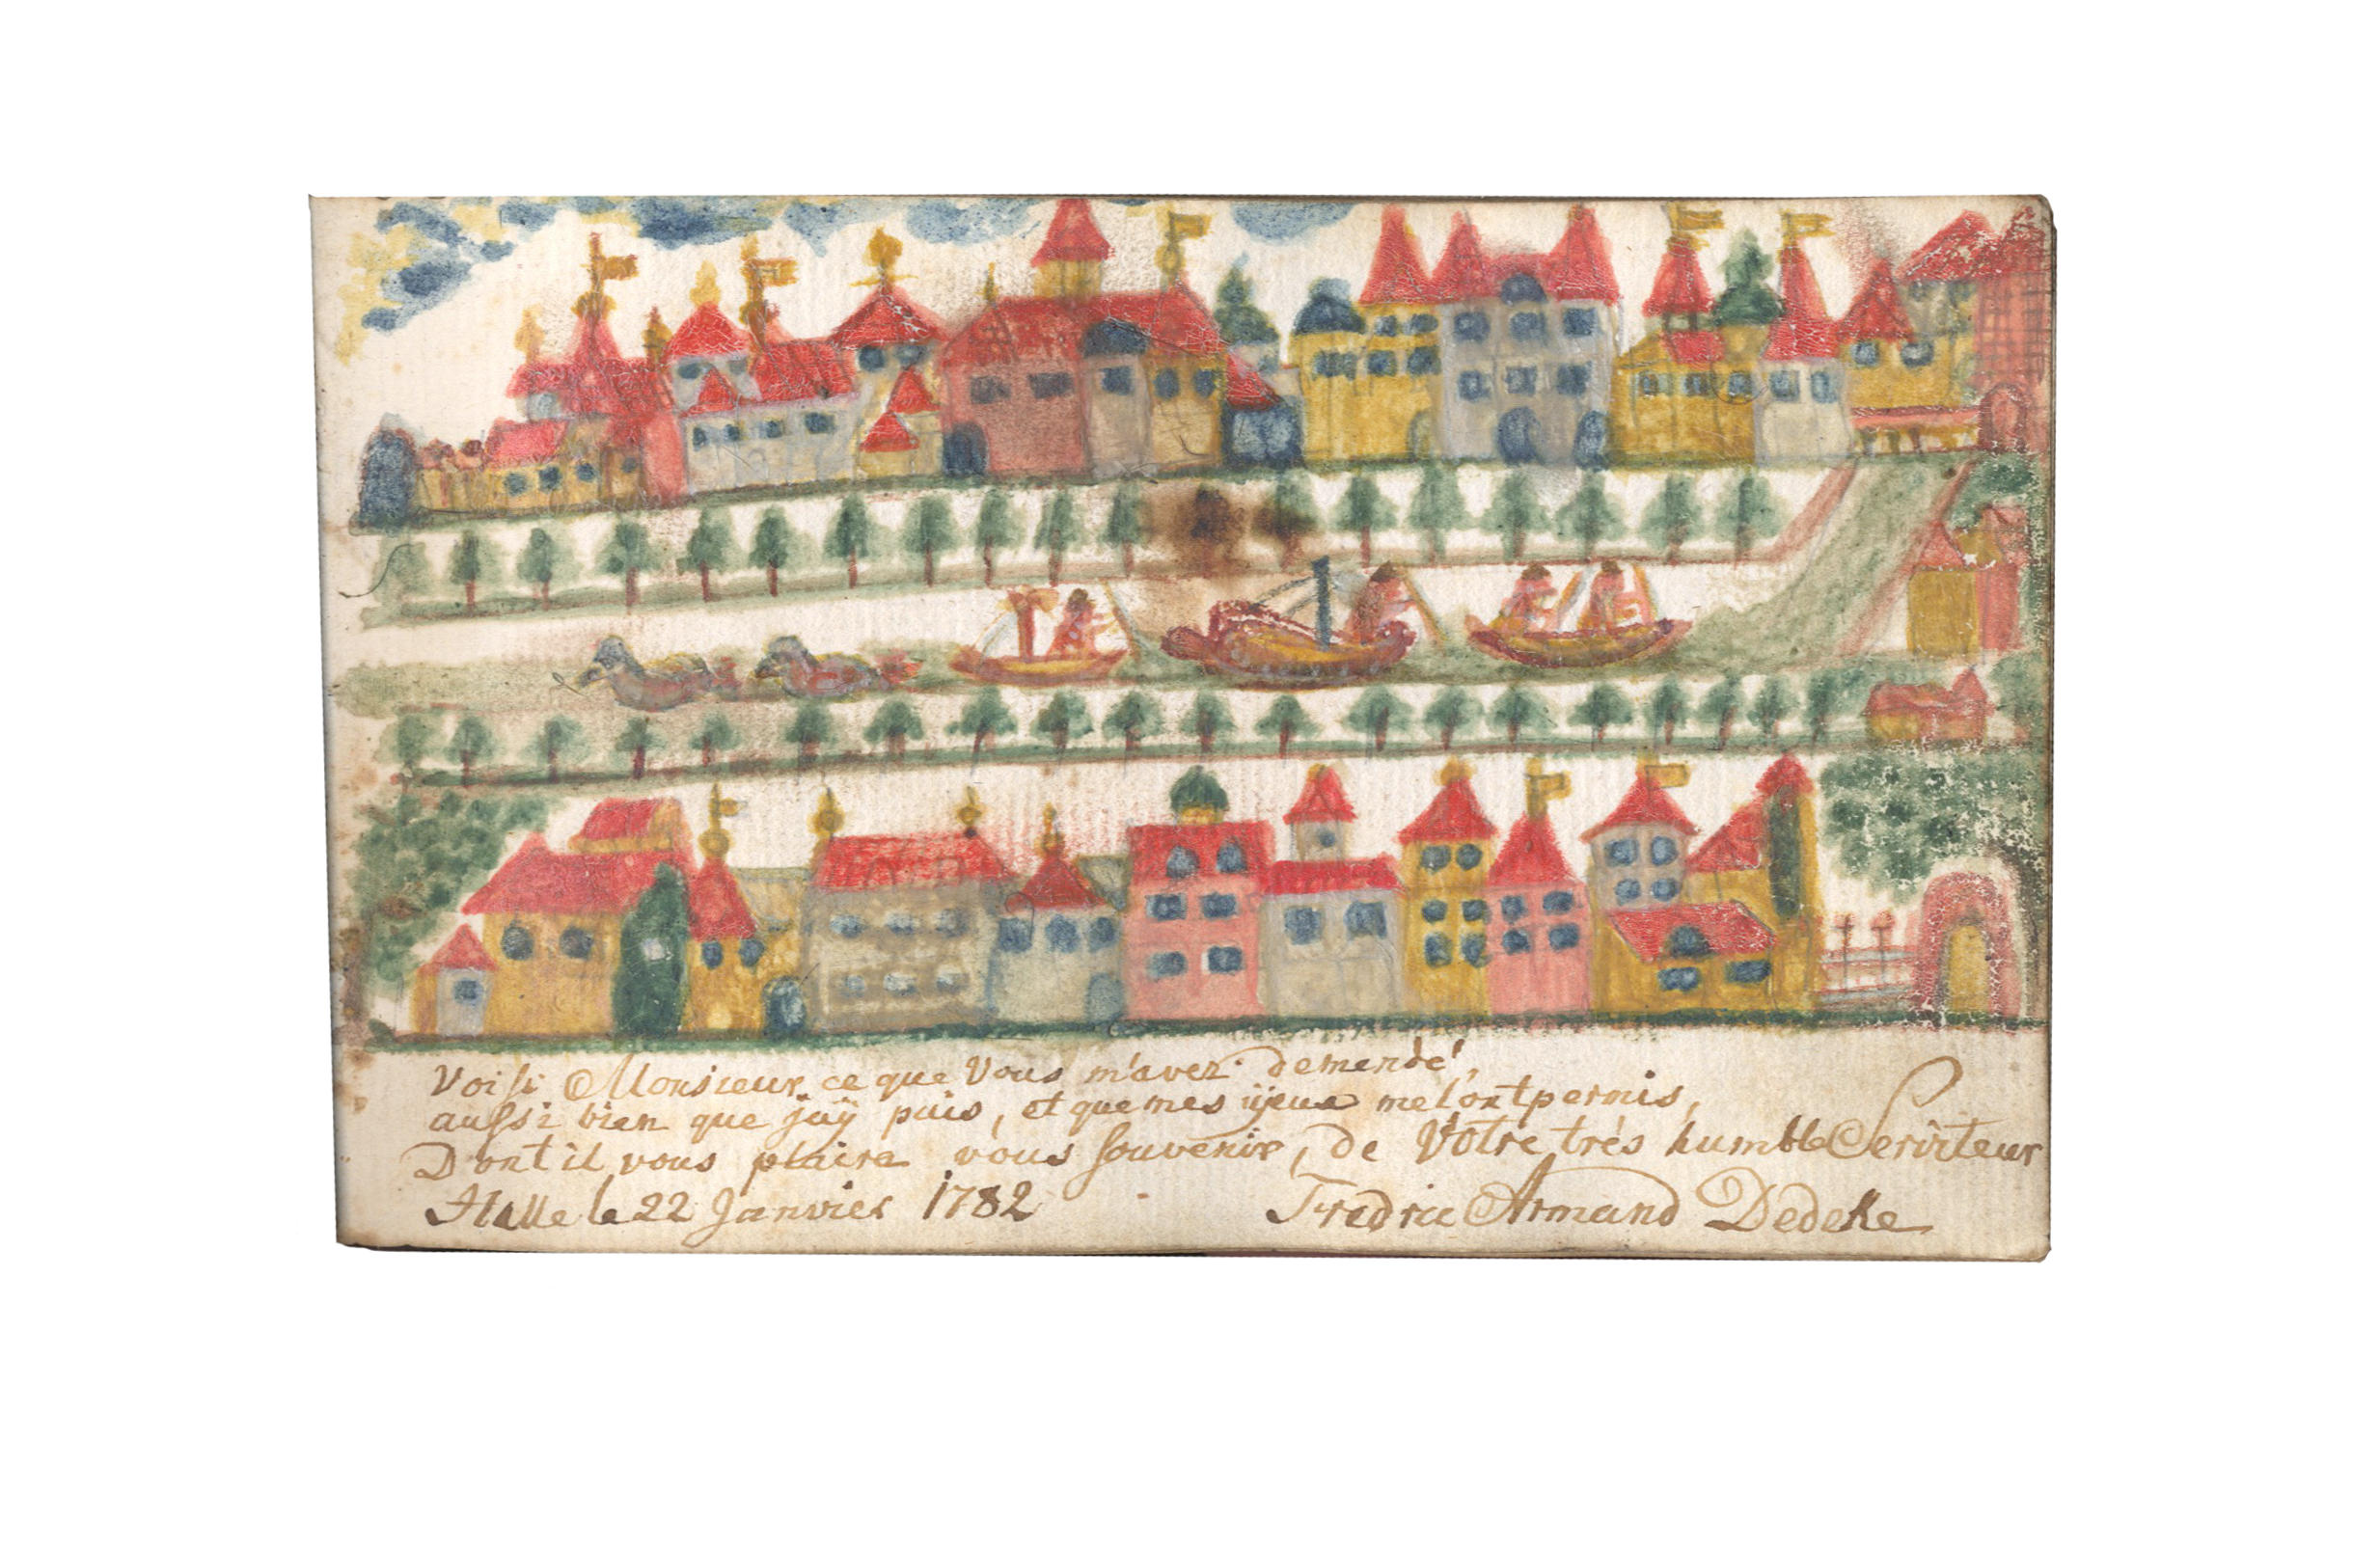 Voisi Monsieur ce que Vous m'avez demendé,
aussi bien que jaÿ puis, et que mes ÿeux me l'ont permis,
Dont il vous plaira vous souvenir, de Votre trés humble Serviteur
Halle le 22 Janvier 1782 Fredric Armand Dedeke